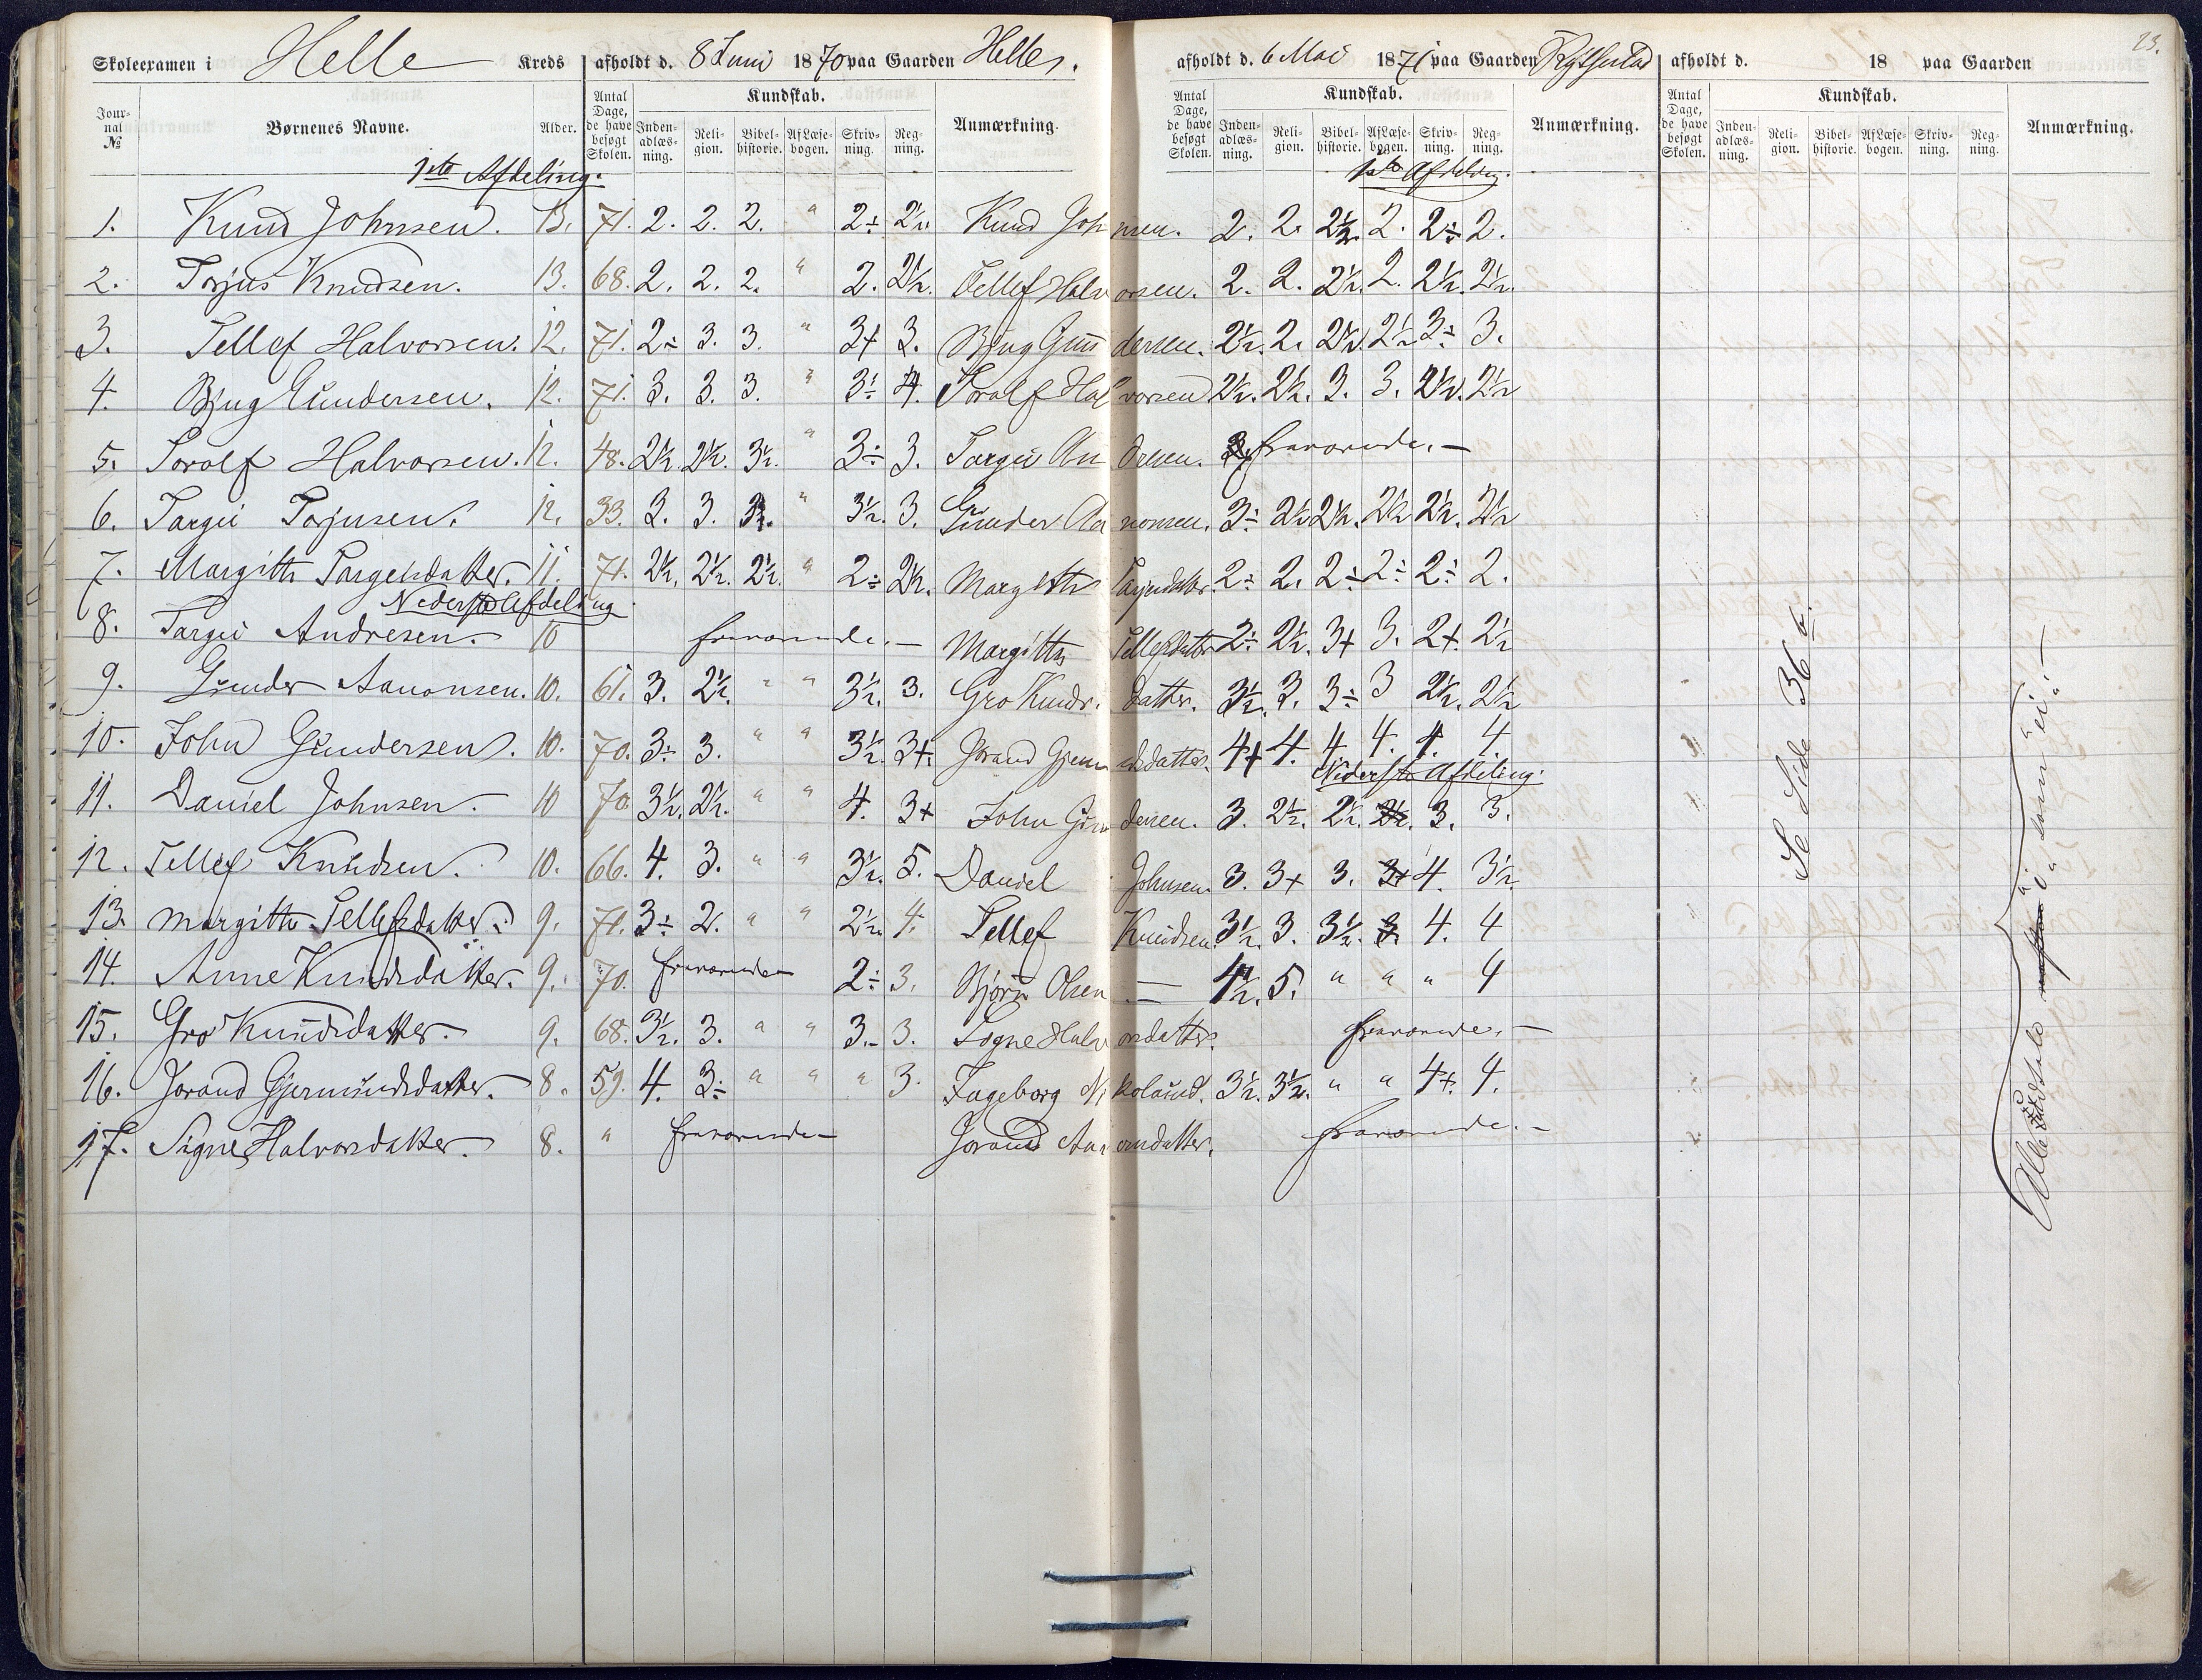 Skoleexamen i Helle Kreds afholdt d. 8 Juni 1870 paa Gaarden Helle.
Jour-nal No Børnenes Navne. Alder. Antal Dage, de have besøgt Skolen. Kundskab. Inden-adlæs-ning. Reli-gion. Bibel-historie. Af Læse-bogen. Skriv-ning. Reg-ning. Anmærkning.
1ste Afdeling.
1. Knud Johnsen. 13. 71. 2. 2. 2. " 2÷ 2½.
2. Torjus Knudsen. 13. 68. 2. 2. 2. " 2. 2½.
3. Tellef Halvorsen. 12. 71. 2÷ 3. 3. " 3+ 3.
4. Bjug Gundersen. 12. 71. 3. 3. 3. " 3÷ 4.
5. Torolf Halvorsen. 12. 48. 2½. 2½. 3½. " 3÷ 3.
6. Targei Torjusen. 12. 33. 3. 3. " 3½. 3.
7. Margith Targeisdatter. 11. 71. 2½. 2½. 2½. " 2÷ 2½.
Nederste Afdeling
8. Targei Andresen. 10 fraværende.
9. Gunder Aanonsen. 10. 61. 3. 2½. " " 3½. 3.
10. John Gundersen. 10. 70. 3÷ 3. " " 3½. 3+.
11. Daniel Johnsen. 10 70. 3½. 2½. " " 4. 3+
12. Tellef Knudsen. 10. 66. 4. 3. " " 3½. 5.
13. Margith Tellefsdatter. 9. 71. 3÷ 2. " " 2½. 4.
14. Anne Knudsdatter. 9. 70. fraværende 2÷ 3.
15. Gro Knudsdatter. 9. 68. 3½. 3. " " 3.- 3.
16. Jorand Gjermundsdatter. 8. 59. 4. 3÷ " " " 3.
17. Signe Halvorsdatter. 8. " fraværende
afholdt d. 6 Mai 1871 paa Gaarden
Antal Dage, de have besøgt Skolen. Kundskab. Inden-adlæs-ning. Reli-gion. Bibel-historie. Af Læse-bogen. Skriv-ning. Reg-ning. Anmærkning.
1ste Afdeling.
Knud Johnsen. 2. 2. 2½. 2. 2÷ 2.
Tellef Halvorsen. 2. 2. 2½. 2. 2½. 2½.
Bjug Gundersen. 2½. 2. 2½. 2½ 3÷ 3.
Torolf Halvorsen 2½. 2½. 3. 3. 2½. 2½
Targei Andresen. fraværende.
Gunder Aanonsen. 3÷ 2½ 2½. 2½ 2½. 2½
Margith 2÷ 2. 2÷ 2÷ 2÷ 2.
Margith Tellefsdatter 2÷ 2½. 3+ 3. 2+. 2½
Gro Knudsdatter. 3½. 3. 3÷ 3 2½. 2½
Jorand Gjermundsdatter. 4+ 4. 4. 4. 4. 4.
Nederste Afdeling.
John Gundersen. 3. 2½. 2½. 2½. 3. 3.
Daniel Johnsen. 3. 3+ 3. 3+ 4. 3½
Tellef Knudsen. 3½. 3. 3½. 3. 4. 4
Bjørn Olsen 4½. 5. " " " 4
Signe Halvorsdatter. fraværende.
Ingeborg Nikolaisd. 3½. 3½. " " 4+. 4.
Jorand Aanonsdatter. fraværende.
afholdt d. 18 paa Gaarden
23.
Antal Dage, de have besøgt Skolen. Kundskab. Inden-adlæs-ning. Reli-gion. Bibel-historie. Af Læse-bogen. Skriv-ning. Reg-ning. Anmærkning.
Se Side 36 b.
Alle udtale "i" som "ei".